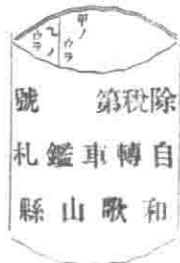 甲ノウラ
乙ノウラ
除稅第　號
自轉車鑑札
和歌山縣